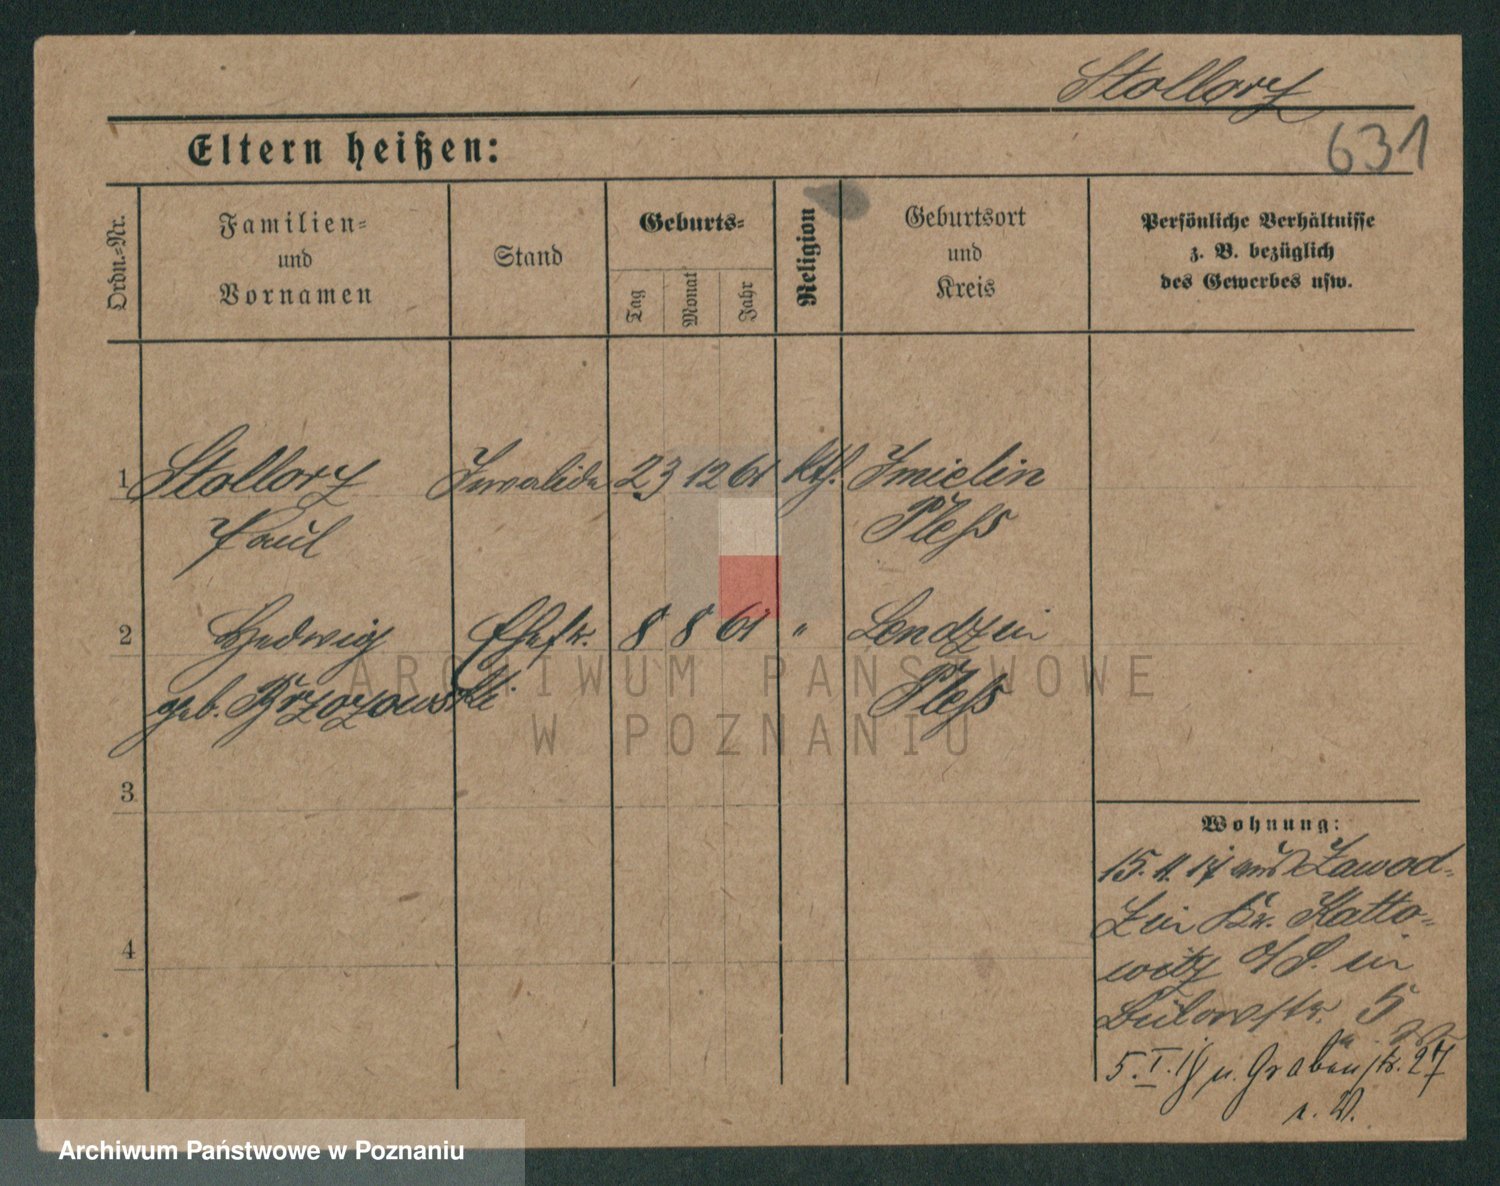 Stollorz
631
Eltern heißen:
Ordn.-Nr.
Familien-
und
Vornamen
Stand
Geburts-
Tag
Monat
Jahr
Religion
Geburtsort
und
Kreis
Persönliche Verhältnisse
z. B. bezüglich
des Gewerbes usw.
1 Stollorz Invalide 23 12 61 kth. Imielin
Paul Pleß
2 Hedwig Ehefr. 8 8 61 " Lendzin
geb. Brzozowski Pleß
3
4
Wohnung:
15. 11. 17 aus Zawod-
zin Kr. Katto-
witz O/S. in
Bülowstr. 5
5. I. 18 n. Grabenstr. 27
ARCHIWUM PAŃSTWOWE
W POZNANIU
Archiwum Państwowe w Poznaniu